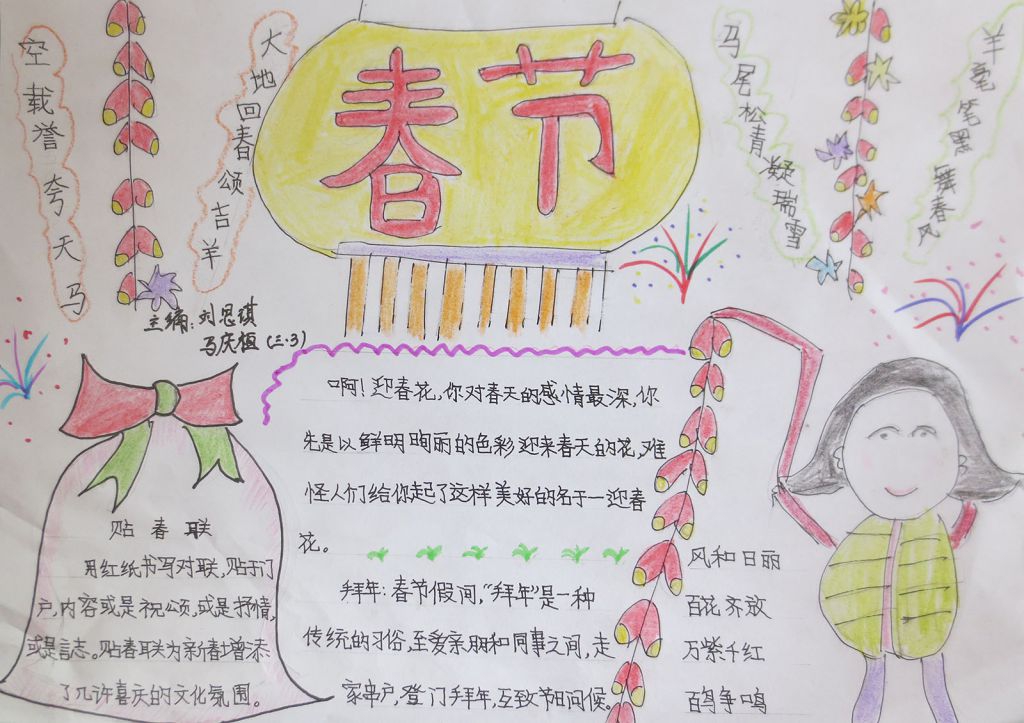 空载誉夸天马
大地回春颂吉羊
春节
马居松青凝瑞雪
羊毫笔墨舞春风
主编:刘思琪
马庆植(三.3)
啊!迎春花,你对春天的感情最深,你
先是以鲜明绚丽的色彩迎来春天的花,难
怪人们给你起了这样美好的名于一迎春
花。
贴春联
用红纸书写对联,贴于门
户,内容或是祝颂,或是抒情,
或是言志。贴春联为新春增添
了几许喜庆的文化氛围。
拜年:春节假间,“拜年”是一种
传统的习俗,至爱亲朋和同事之间,走
家串户,登门拜年,互致节日问候。
风和日丽
百花齐放
万紫千红
百鸟争鸣